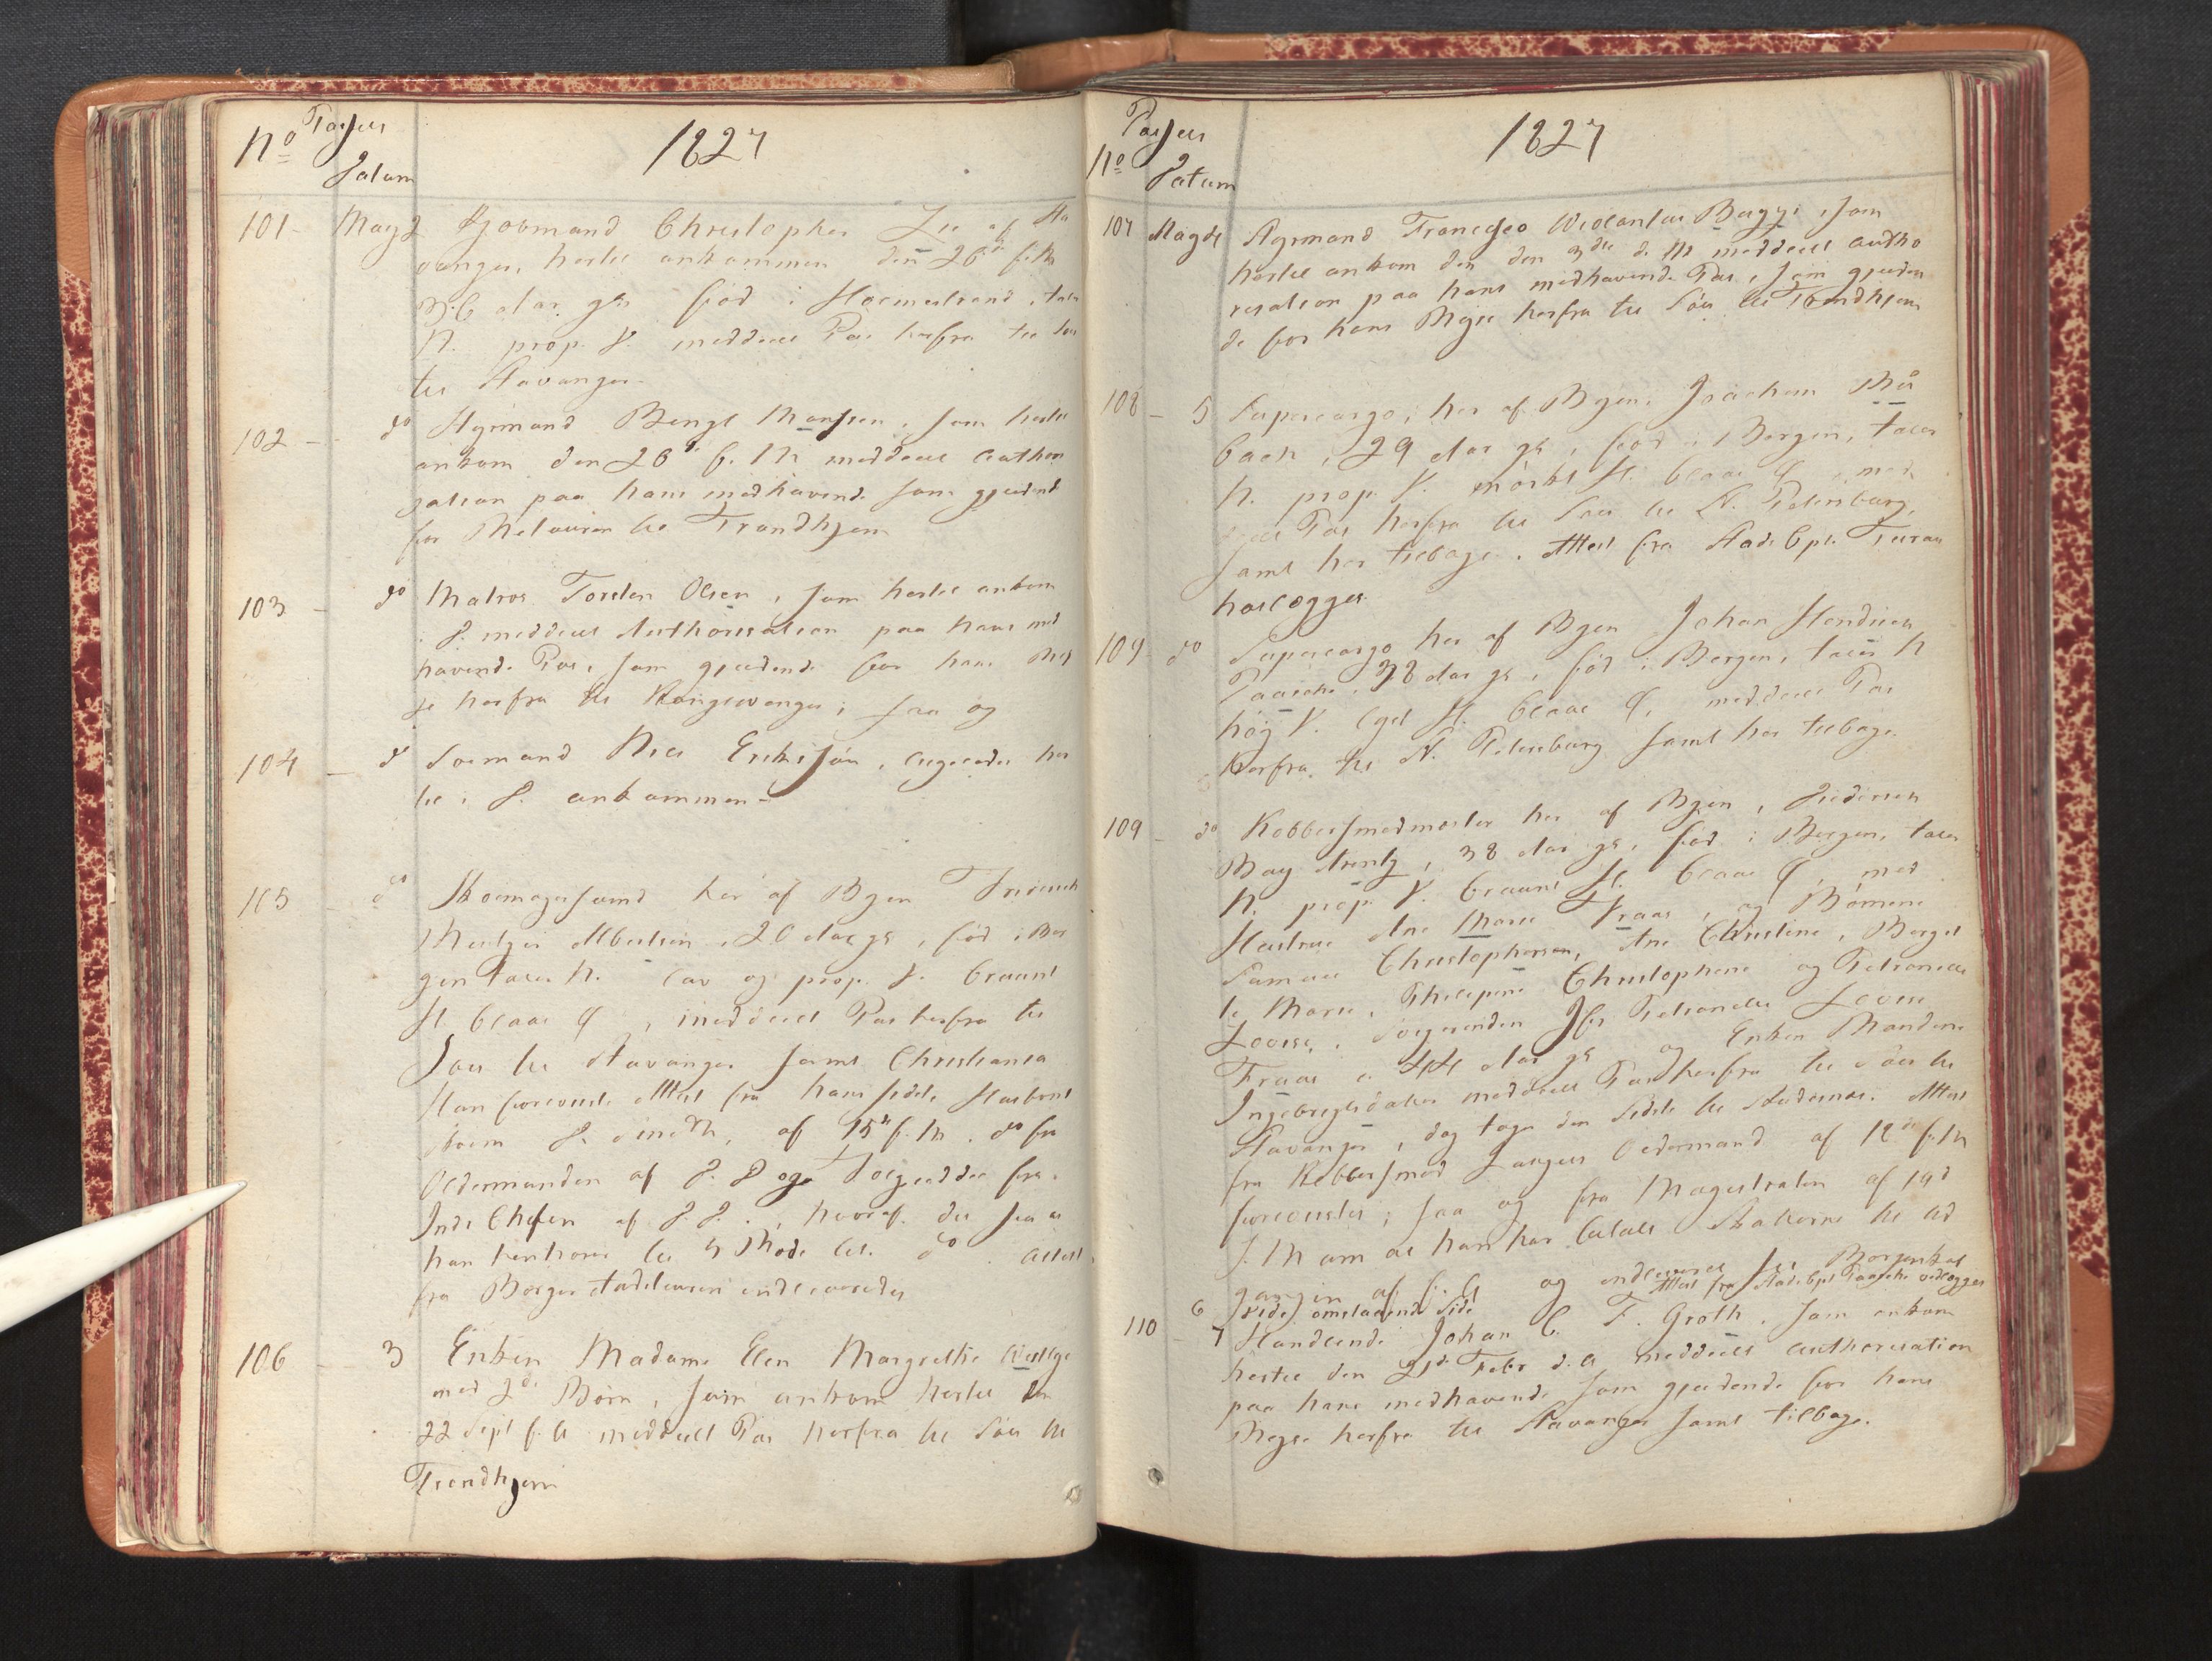 No Passets
Datum
1827
101 - May 2 Kjøbmand Christopher Lie af Sta
vanger, hertil ankommen den 26de f. M
36 Aar gl. fød i Holmestrand, taler
N. prop. V. meddeelt Pas herfra til Søes
til Stavanger
102 - do Styrmand Bengt Hansen, som hertil
ankom den 26d f. M meddeelt Authori
sation paa hans medhavende som gjeldende
for Retouren til Trondhjem
103 - do Matros Torsten Olsen, som hertil ankom
i D. meddeelt Authorisation paa hans med
havende Pas, som gjeldende for hans Rej
se herfra til Kongsvinger; saa og
104 - do Soemand Nils Eriksøn, ligeledes her
til i D. ankommen -
105 - do Skoemagersvend her af Byen Friderich
Mentzer Albertsen, 20 Aar gl, fød i Ber
gen taler N. lav og prop. V. bruunt
H blaae Ø, meddeelt Pas herfra til
Søes til Stavanger samt Christiania
Han foreviiste Attest fra hans sidste Huusbond
Skoem D. Smith, af 15de f. M. do fra
Oldermanden af D. D og Seigldde fra
Inds Chefen af D. D., hvoraf det sees at
han henhører til 4 Rode Lit. do. Attest
fra Borger Adelsteen indleveredes
106 - 3 Enken Madame Elen Margrethe
med 2de Børn, som ankom hertil den
22 Sept f. A meddeelt Pas herfra til Søes til
Trondhjem
Passets
No Datum
1827
107 May 3 Styrmand Francisco Violantus Baggi, som
hertil ankom den den 3die d. M meddeelt Autho
risation paa hans medhavende Pas, som gjelden
de for hans Rejse herfra til Søes til Trondhjem
108 - 5 Supercargo, her af Byen, Joachim
bach, 29 Aar gl, fød i Bergen, taler
N. prop. V. mørkt H. blaae Ø, med
deelt Pas herfra til Søes til St. Petersburg,
samt her tilbage. Attest fra Stads Cpt.
heslægges
109 do Supercargo her af Byen Johan Hendrich
Paasche, 38 Aar gl, fød i Bergen, taler N
høy V. lyst H. blaae Ø, meddeelt Pas
herfra til St. Petersburg samt her tilbage.
109 - do Kobbersmedmester her af Byen, Diderich
Bay Arentz, 38 Aar gl, fød i Bergen, taler
N. prop. V. bruunt H. blaae Ø, med
Hustrue Ane Marie Fraas, og Børnene
Samuel Christophersen, Ane Christine, Berget
te Marie, Philipine Christophine og Petronelle
Lovise, Svigerinden Jfr Petronelle Lovise
Fraas 44 Aar gl og Enken Mandrine
Ingebrigtsdatter meddeelt Pas herfra til Søes til
Stavanger, dog tages den sidste til Studesnæs. Attest
fra Kobbersmed Oldermand af 12de f. M
foreviistes; saa og fra Magistraten af 19d
s. M om at han har betalt Skatterne til Ud
gangen af f. A og indleveret sit Borgerskab
6 (vide omstaaende Side) Attest fra Stads Cpt Paasche vedlægges
110 - 7 Handlende Johan C. F. Groth, som ankom
hertil den 21de Febr d. A meddeelt Authorisation
paa hans medhavende som gjeldende for hans
Rejse herfra til Stavanger samt tilbage.